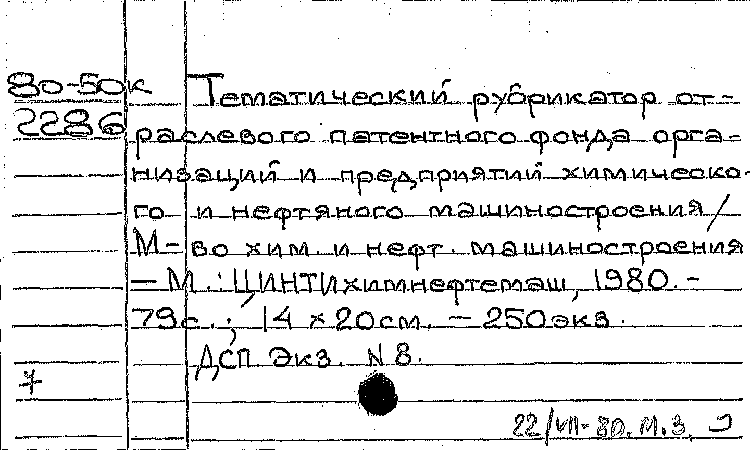 80-50к Тематический рубрикатор от-
2286 раслевого патентного фонда орга-
низаций и предприятий химическо-
го и нефтяного машиностроения/
М-во хим. и нефт. машиностроения
— М.: ЦИНТИхимнефтемаш, 1980. -
79с.; 14 х 20см. — 250экз.
ДСП Экз. N 8.
7
22/VII-80. М.З.